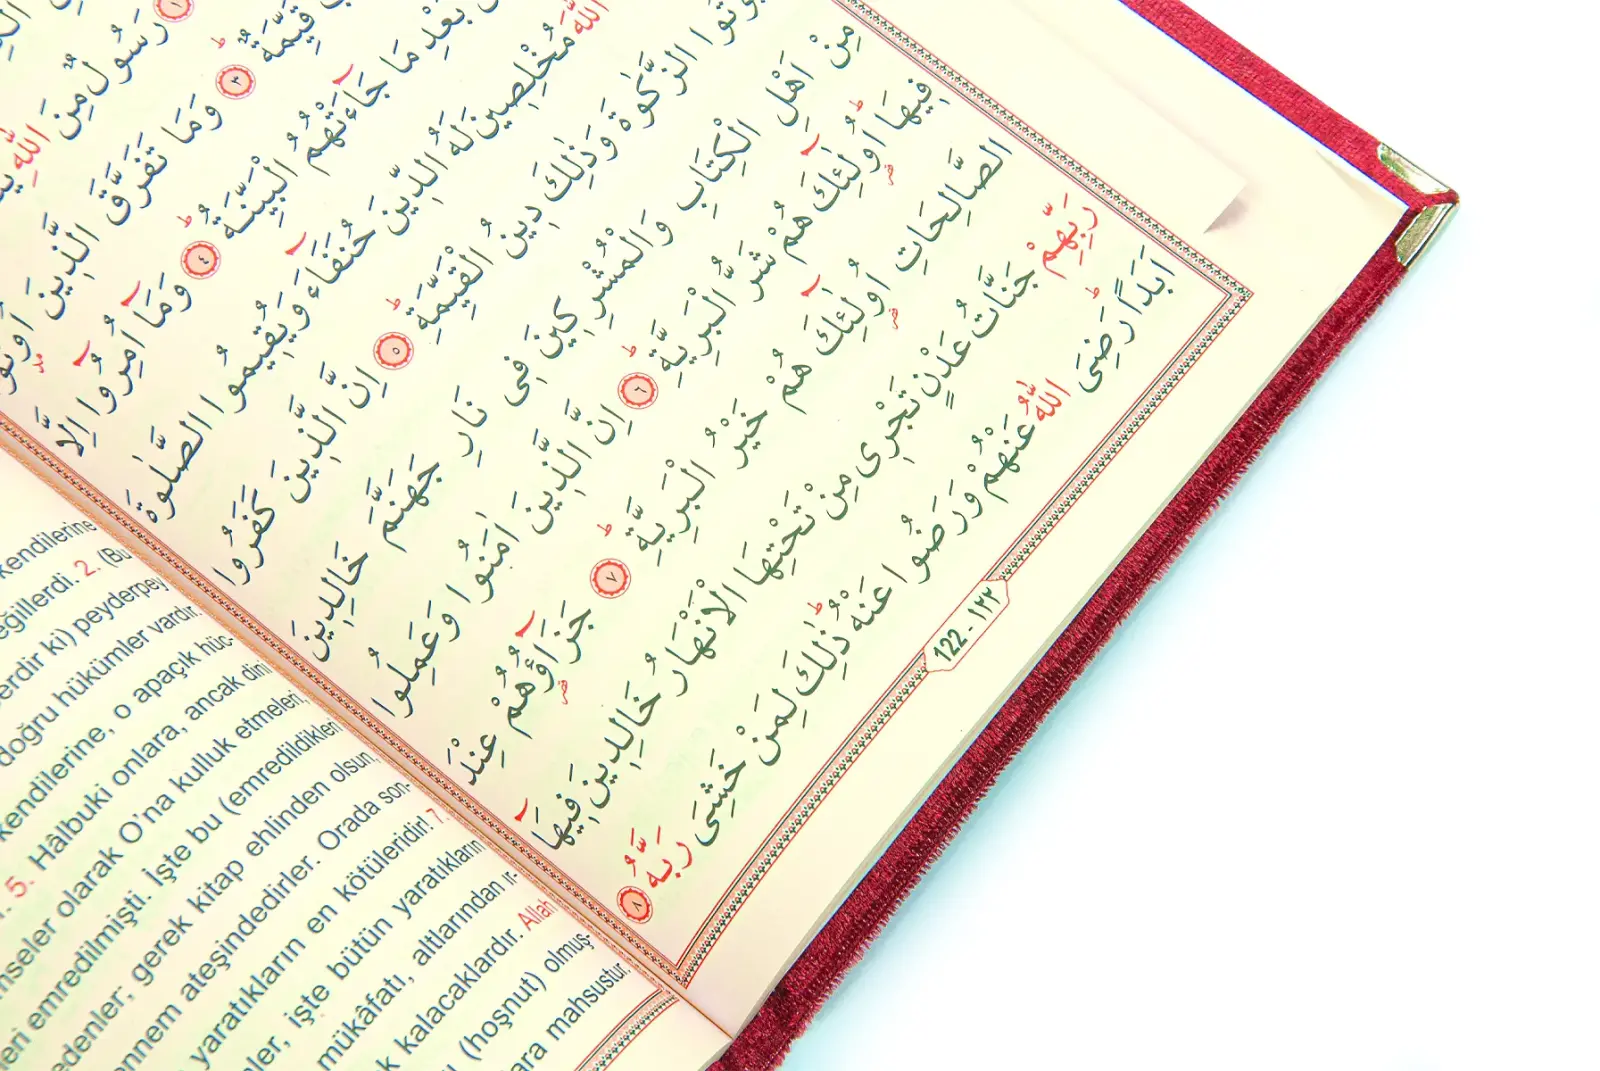 ١ رَسُولٌ مِنَ اللّٰهِ
قَيِّمَةٌ ٣ وَمَا تَفَرَّقَ الَّذِينَ اُوتُوا
بَعْدِ مَا جَاءَتْهُمُ الْبَيِّنَةُ ٤ وَمَا اُمِرُوا اِلَّا
اللّٰهَ مُخْلِصِينَ لَهُ الدِّينَ حُنَفَاءَ وَيُقِيمُوا الصَّلٰوةَ
ؤْتُوا الزَّكٰوةَ وَذٰلِكَ دِينُ الْقَيِّمَةِ ٥ اِنَّ الَّذِينَ كَفَرُوا
مِنْ اَهْلِ الْكِتَابِ وَالْمُشْرِكِينَ فِى نَارِ جَهَنَّمَ خَالِدِينَ
فِيهَا اُولٰئِكَ هُمْ شَرُّ الْبَرِيَّةِ ٦ اِنَّ الَّذِينَ اٰمَنُوا وَعَمِلُوا
الصَّالِحَاتِ اُولٰئِكَ هُمْ خَيْرُ الْبَرِيَّةِ ٧ جَزَاؤُهُمْ عِنْدَ
رَبِّهِمْ جَنَّاتُ عَدْنٍ تَجْرِى مِنْ تَحْتِهَا الْاَنْهَارُ خَالِدِينَ فِيهَا
اَبَدًا رَضِىَ اللّٰهُ عَنْهُمْ وَرَضُوا عَنْهُ ذٰلِكَ لِمَنْ خَشِىَ رَبَّهُ ٨
122 - ١٢٢
kendilerine
eğillerdi. 2. (Bu
erdir ki) peyderpey
doğru hükümler vardır.
kendilerine, o apaçık hüc-
5. Hâlbuki onlara, ancak dini
nseler olarak O'na kulluk etmeleri,
eri emredilmişti. İşte bu (emredildikleri
edenler; gerek kitap ehlinden olsun,
ennem ateşindedirler. Orada son-
yaratıkların en kötüleridir! 7.
ler, işte bütün yaratıkların
mükâfatı, altlarından ır-
k kalacaklardır. Allah
(hoşnut) olmuş-
ara mahsustur.